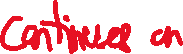 Continues on